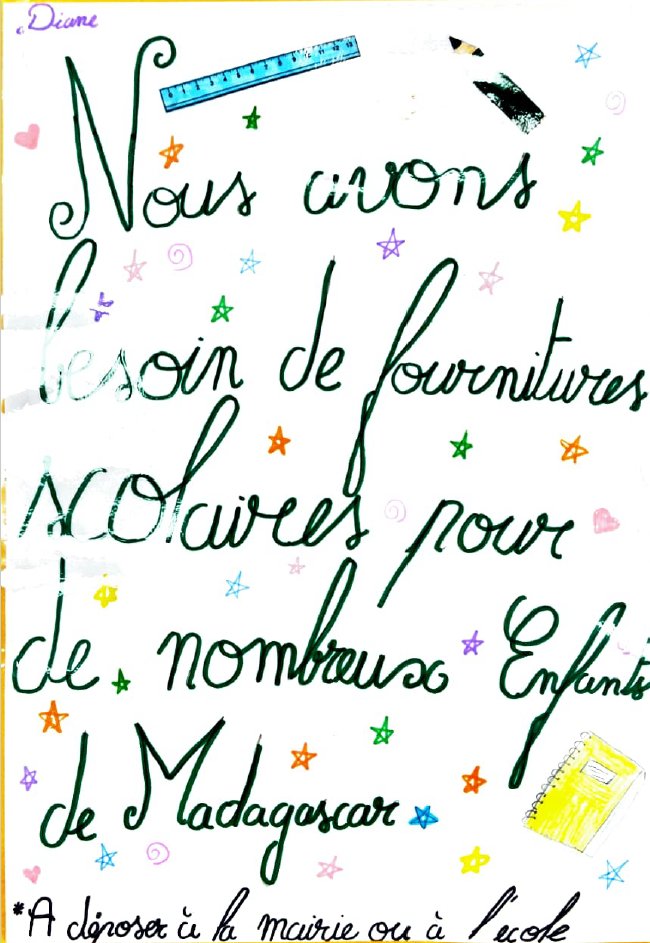 Diane
Nous avons
besoin de fournitures
scolaires pour
de nombreux Enfants
de Madagascar
*A déposer à la mairie ou à l'école